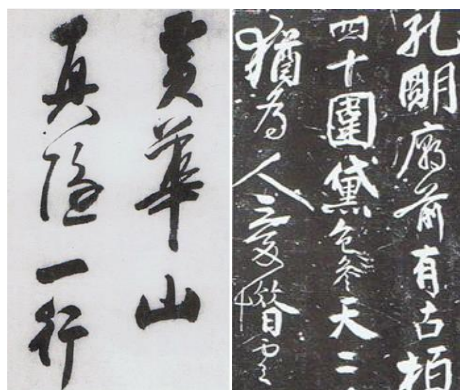 黄華山
真隱一行
孔明廟前有古柏
四十圍黛色參天二
猶為人愛惜雲